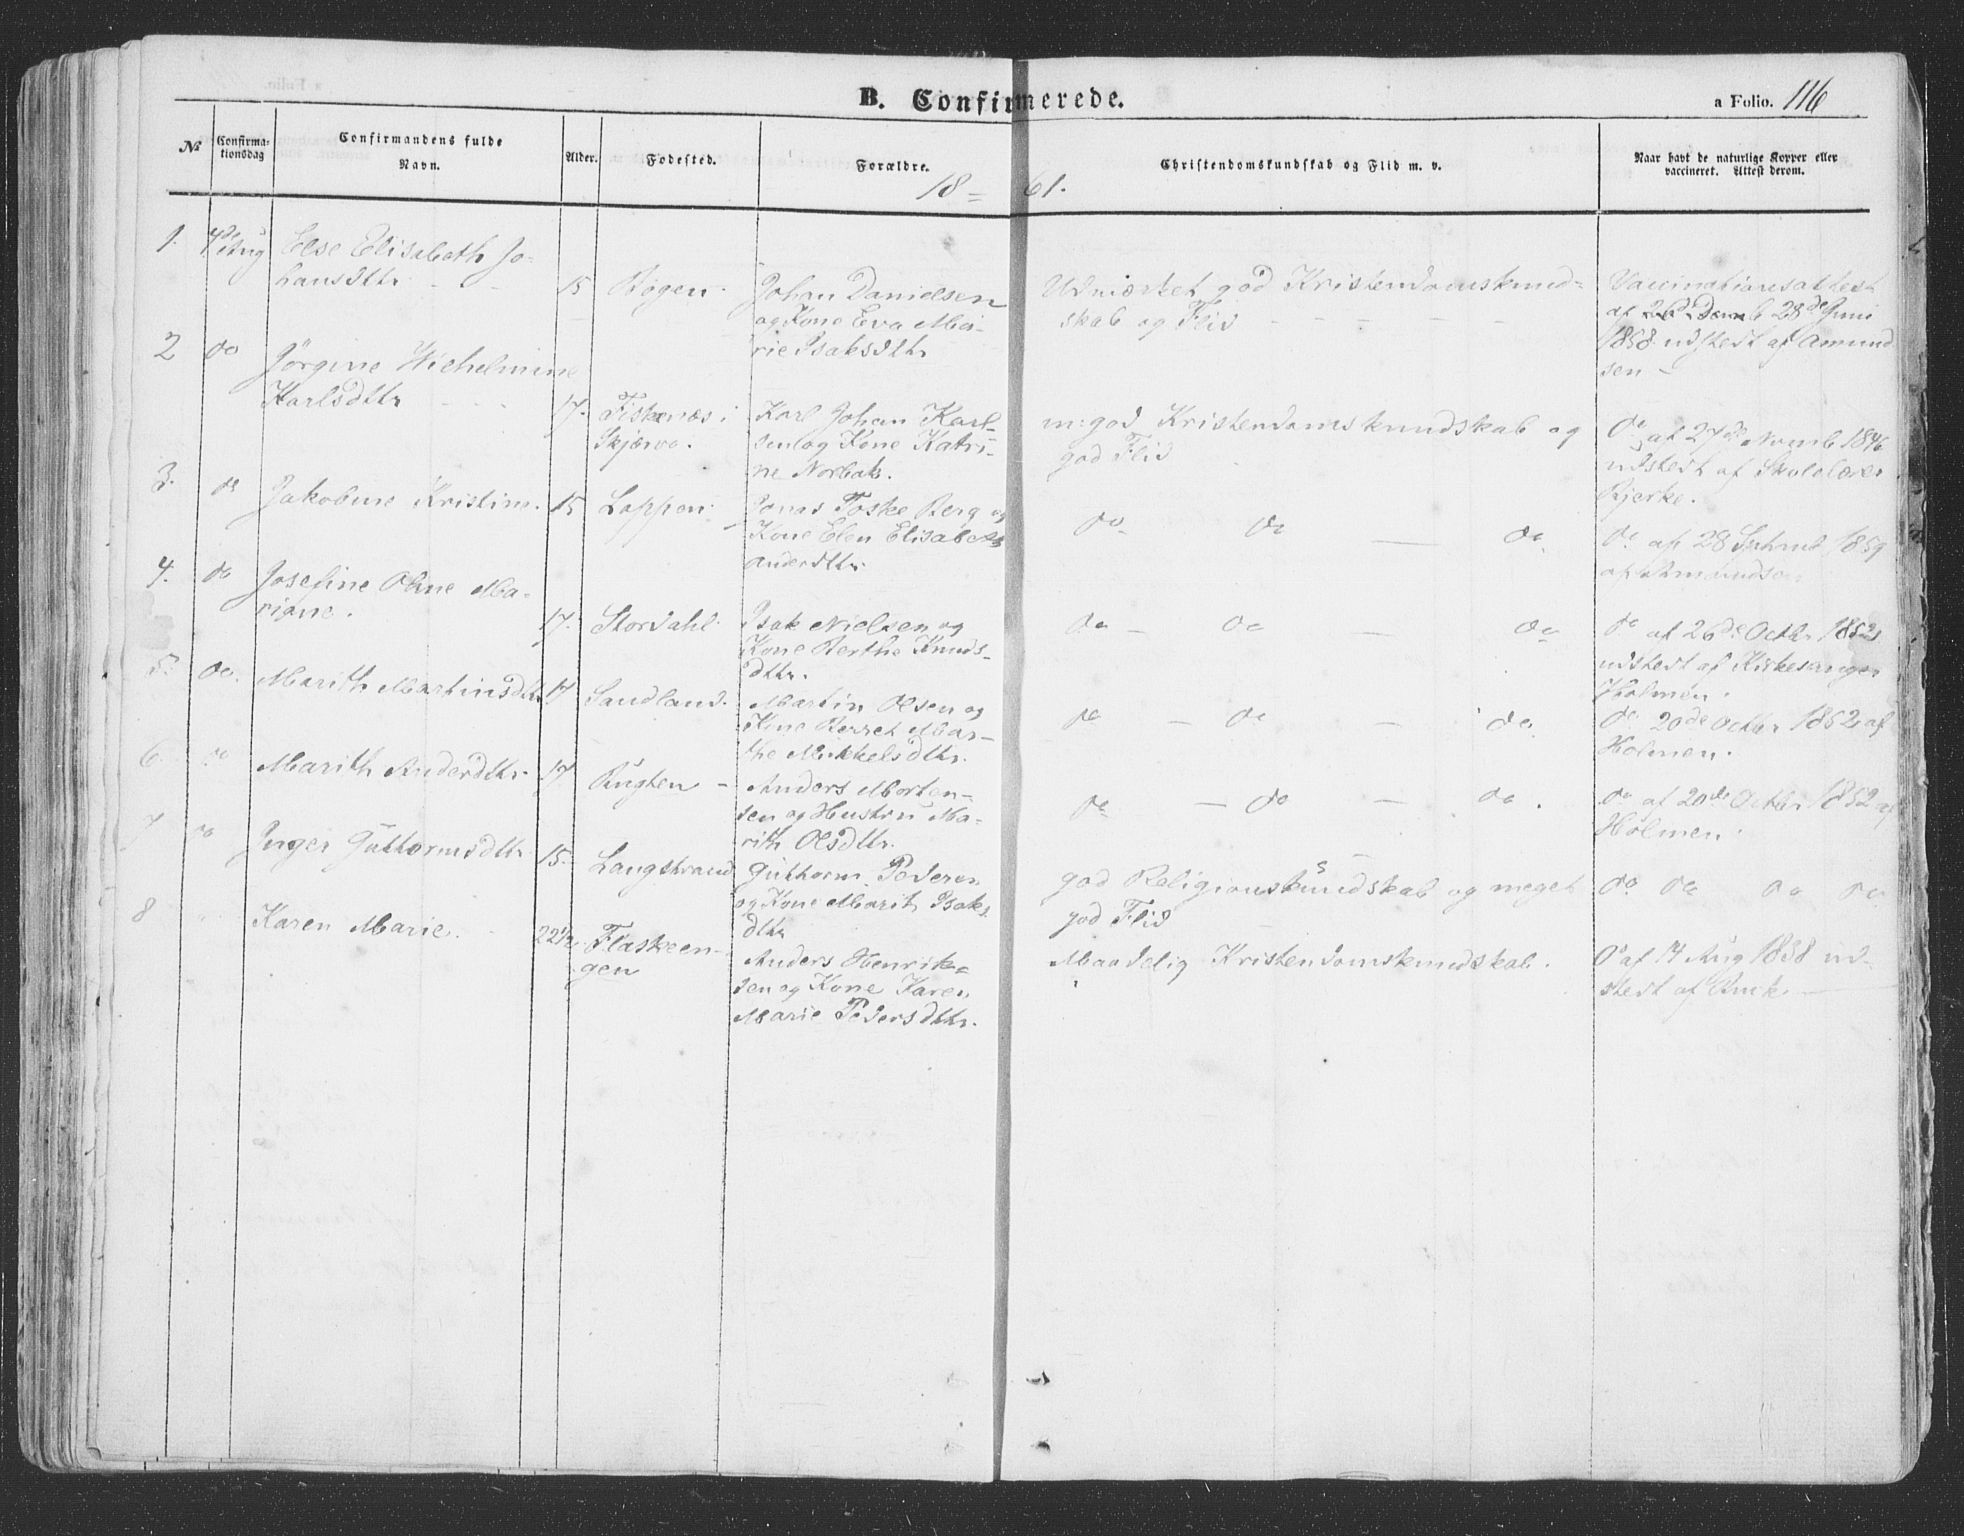 B. Confirmerede.
a Folio. 116
№
Confirma-
tionsdag
Confirmandens fulde
Navn.
Alder.
Fødested.
Forældre.
Christendomskundskab og Flid m. v.
Naar havt de naturlige Kopper eller
vaccineret. Attest derom.
18 = 61.
1. 4de Aug Else Elisabeth Jo-
hansdtr 15 Bøgen
Johan Danielsen
og Kone Eva Ma-
rie Isaksdtr
Udmærket god Kristendomskund-
skab og Flid
Vaccinationsattest
af 28de Juni
1858 udstedt af Amund
sen
2 do Jørgine Wilhelmine
Karlsdtr 17. Fiskenæs i
Skjærvø.
Karl Johan Karl-
sen og Kone Katri-
ne Norbak.
m: god Kristendomskundskab og
god Flid
do af 27de Novmb 1846
udstedt af Skolelærer
Bjerke.
3. do Jakobine Kristine. 15 Loppen
Jonas Foske Berg og
Kone Elen Elisabeth
Andersdtr.
do do do.
do af 28 1859
af Amundsen
4. do Josefine Oline Ma-
riane. 17. Stordahl
Isak Nielsen og
Kone Berthe Knuds-
dtr.
do do do
do af 26de Octbr 1852
udstedt af Kirkesanger
Holmen.
5. do. Marith Martinsdtr 17 Sandland.
Martin Olsen og
Kone Berret Mar-
the Mikkelsdtr.
do do do.
do 20de Octbr 1852 af
Holmen.
6 do Marith Andersdtr. 17 Rugten
Anders Morten-
sen og Hustru Ma-
rith Olsdtr.
do do do.
do af 20de Octbr 1852 af
Holmen.
7 do Inger Guttormsdtr 15. Langstrand
Guttorm Pedersen
og Kone Marit Isaks
dtr
god Religionskundskab og meget
god Flid
do do do do.
8 Karen Marie. 22½ Flaskeen-
gen
Anders Henrik-
sen og Kone Karen
Marie Pedersdtr.
Maadelig Kristendomskundskab.
do af 14 Aug 1838 ud-
stedt af